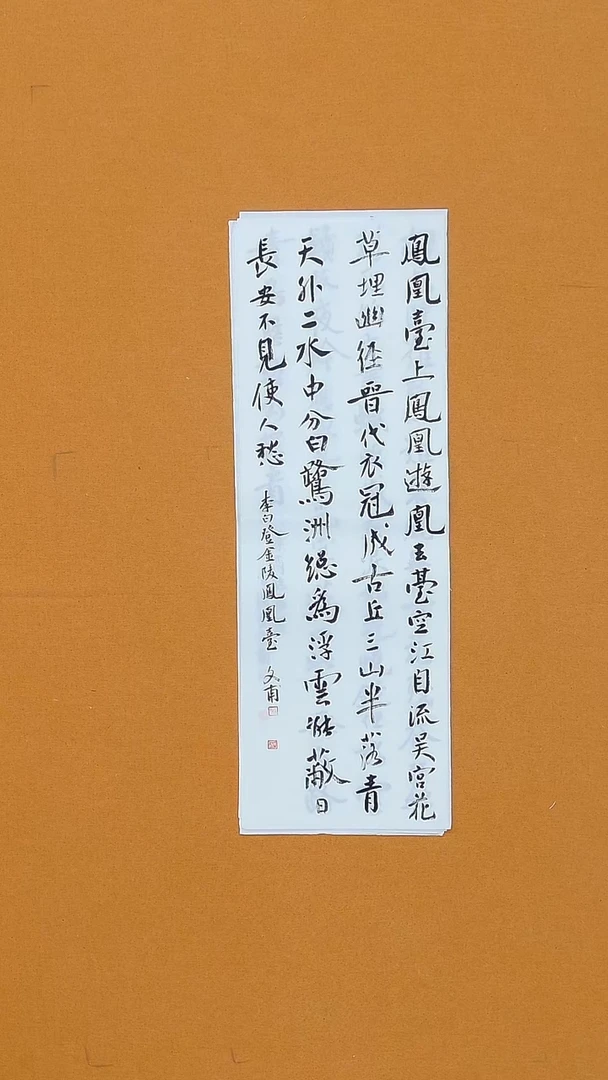 鳳凰臺上鳳凰遊鳳去臺空江自流吳宮花
草埋幽徑晉代衣冠成古丘三山半落青
天外二水中分白鷺洲總為浮雲能蔽日
長安不見使人愁
李白登金陵鳳凰臺 文甫